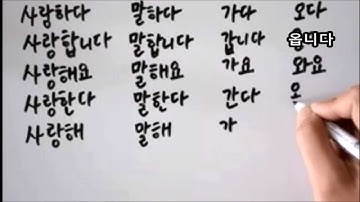 사랑하다 말하다 가다 오다
사랑합니다 말합니다 갑니다 옵니다
사랑해요 말해요 가요 와요
사랑한다 말한다 간다 오
사랑해 말해 가